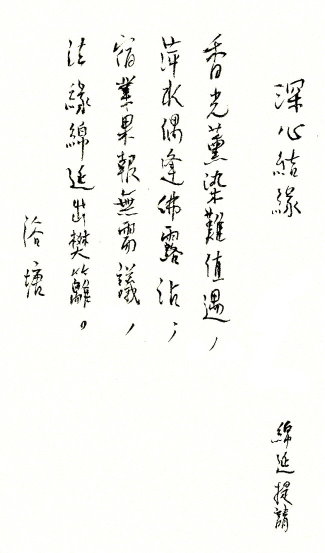 深心結緣
綿延提請
香光薰染難值遇，
萍水偶逢佛露沾；
宿業果報無需議，
法緣綿延出樊籬。
洽塘